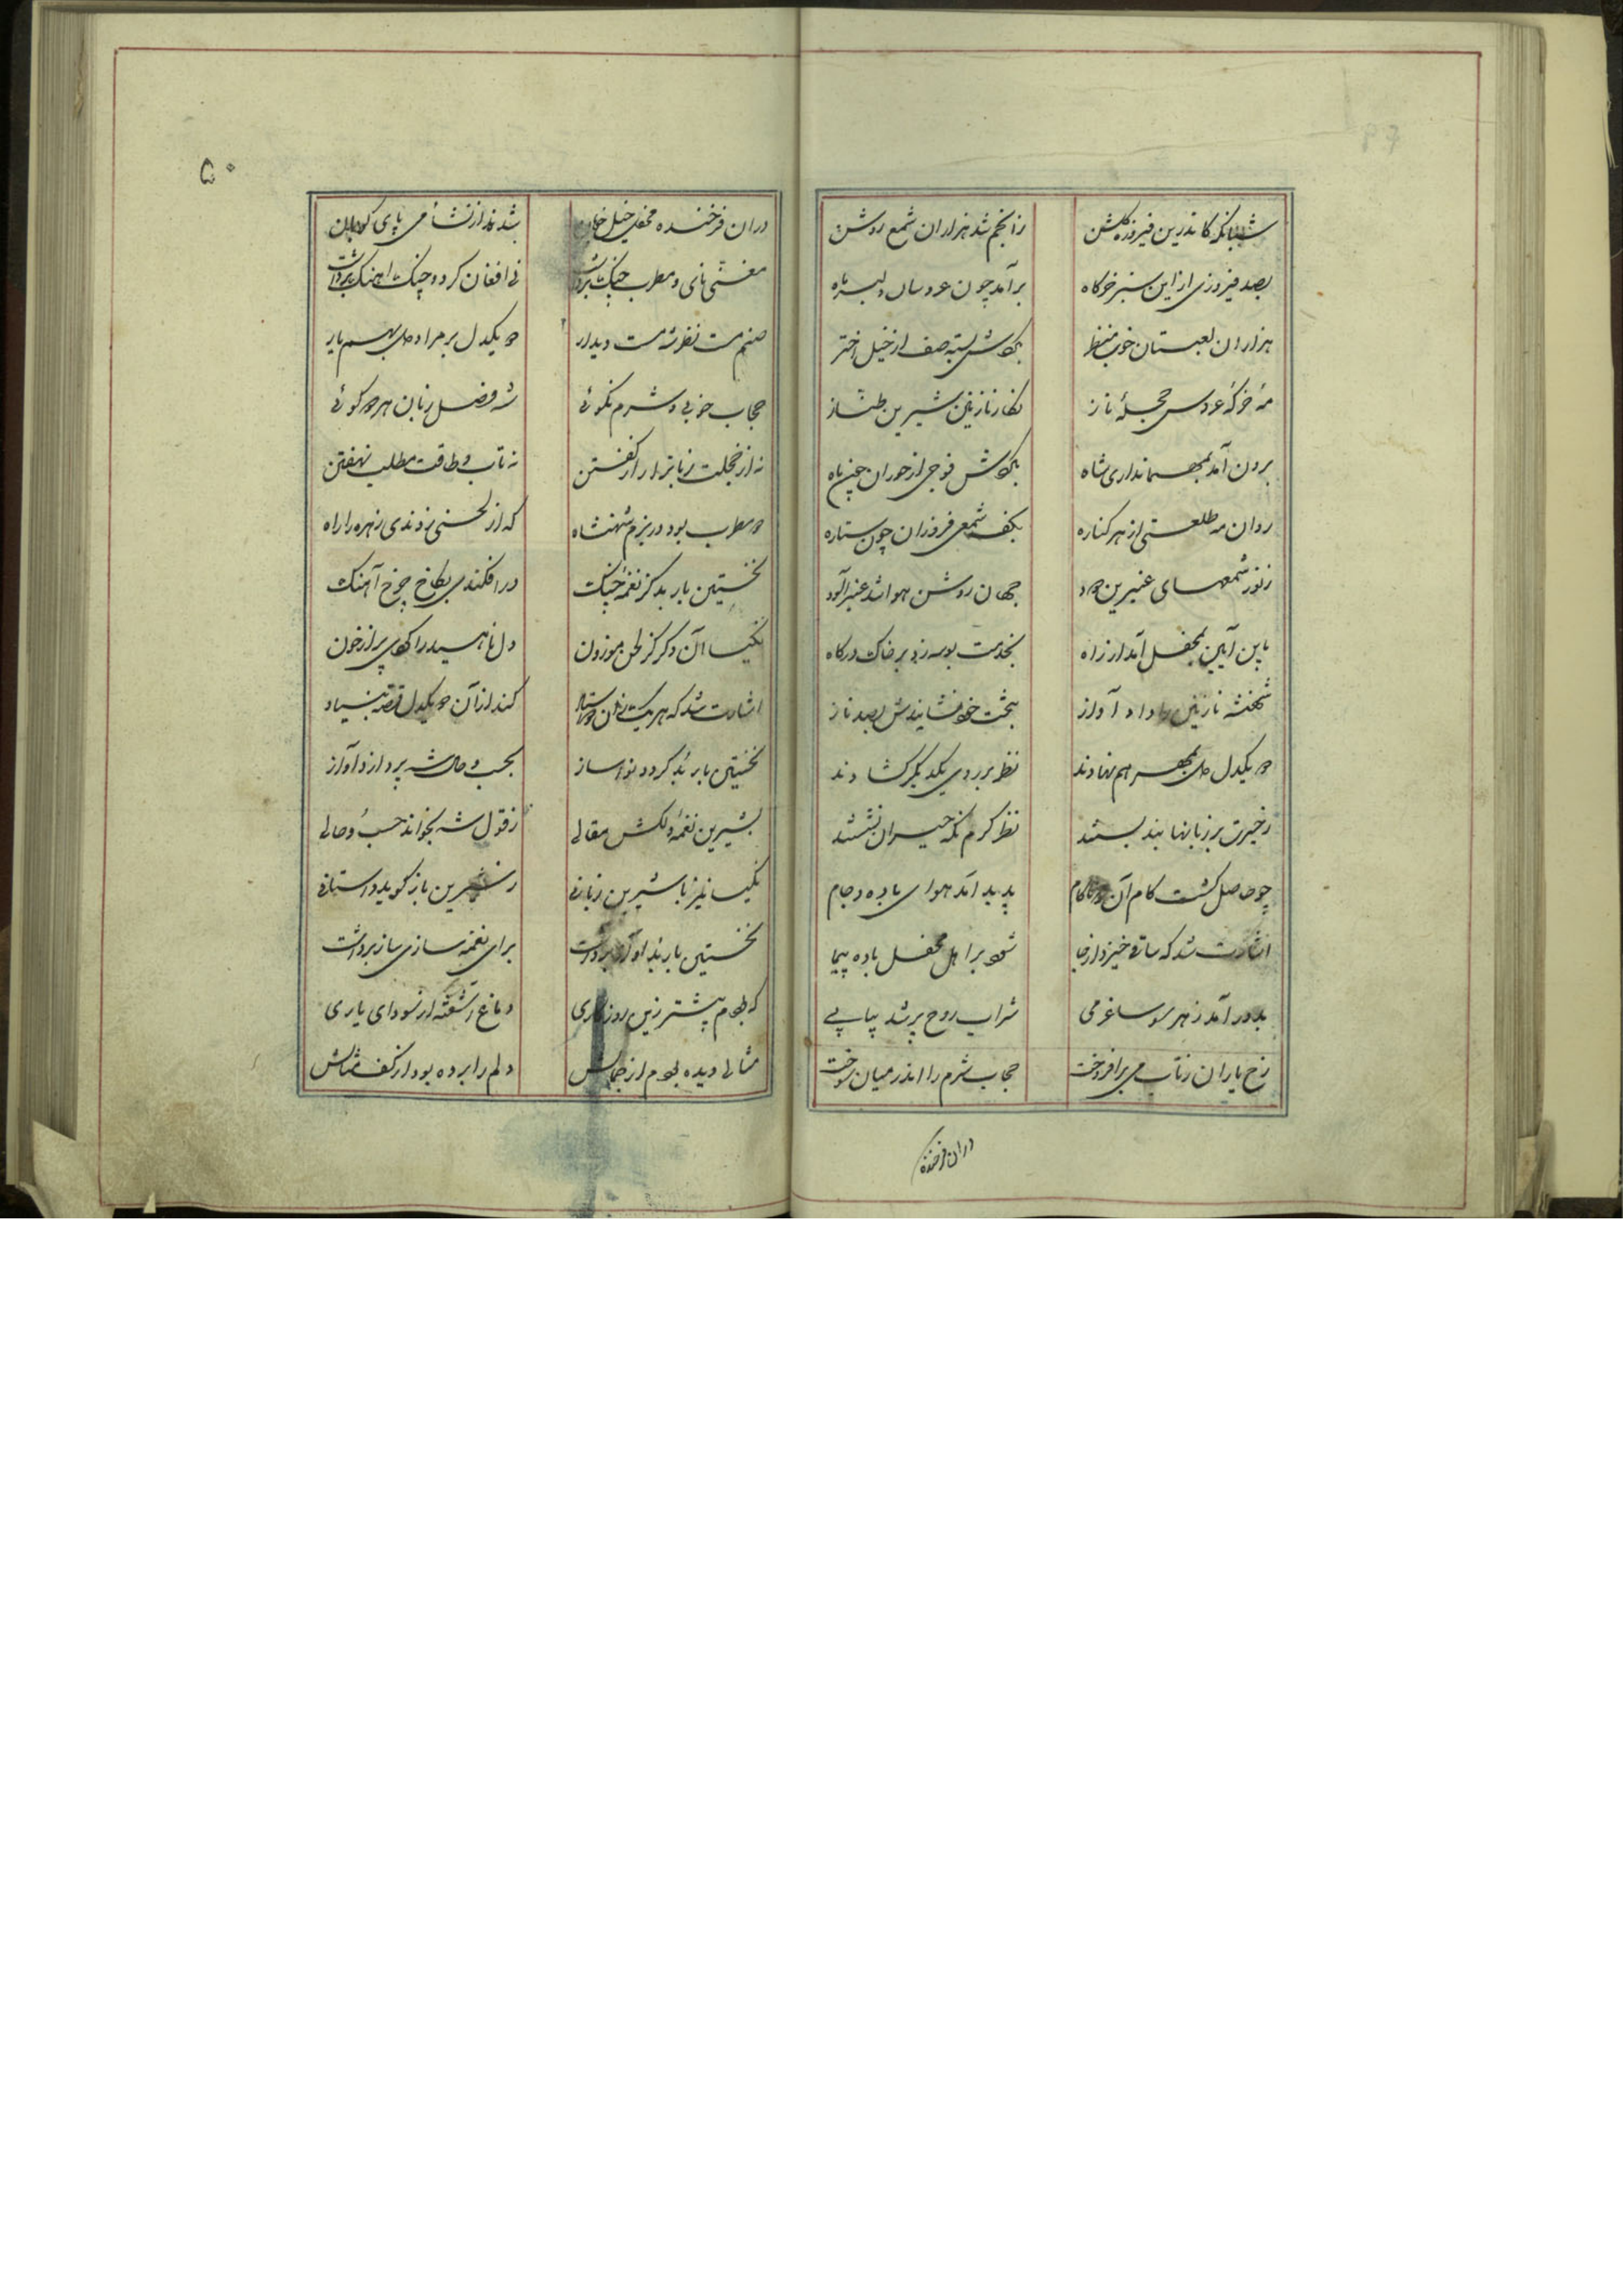 شبانگه کاندرین فیروزه گلشن زانجم شد هزاران شمع روشن
بصد فیروزی از این سبز خرگاه برآمد چون عروسان دلبر ماه
هزاران لعبتان خوب منظر بکوشش بسته صف از خیل اختر
مه خرگه عروس حجلهٔ ناز نگار نازنین شیرین طناز
برون آمد بمهمانداری شاه بکوشش فوجی از حوران چون ماه
روان مه طلعتی از هر کناره بکف شمعی فروزان چون ستاره
ز نور شمعهای عنبرین دود جهان روشن هوا شد عنبرآلود
باین آیین بمحفل آمد از راه بخدمت بوسه زد بر خاک درگاه
شهنشه نازنین را داد آواز بتخت خود نشاندش بصد ناز
دو یکدل دل بمهر هم نهادند نظر بر روی یکدیگر گشادند
ز حیرت بر زبانها بند بستند نظر کرم نگه حیران نشستند
چو حاصل گشت کام آن دو ناکام پدید آمد هوای باده و جام
اشارت شد که ساقی خیزد از جا شود بر اهل محفل باده پیما
بدور آمد ز هر سو ساغر می شراب روح پرشد پیاپی
رخ یاران ز تاب می برافروخت حجاب شرم را اندر میان سوخت
دران فرخنده
۵۰
دران فرخنده محفل خیل خوبان شدند از نشأ می پای کوبان
مغنی نای و مطرب چنگ برداشت نی افغان کرد و چنگ آهنگ برداشت
صنم مست نظر شه مست دیدار دو یکدل بر مراد دل بهم یار
حجاب خوبی و شرم نکوئی شه و فصل زبان هرزه گوئی
نه از خجلت زبانرا راز گفتن نه تاب و طاقت مطلب نهفتن
دو مطرب بود در بزم شهنشاه که از لحنی زدندی زهره را راه
نخستین باربد کز نغمهٔ چنگ درافکندی بکاخ چرخ آهنگ
نکیسا آن دگر کز لحن موزون دل ناهید را کردی پر از خون
اشارت شد که هریک زان دو استاد کند از آن دو یکدل قصه بنیاد
نخستین باربد گردد نواساز بحسب حال شه بردارد آواز
بشیرین نغمهٔ دلکش مقالی ز قول شه بخواند حسب و حالی
نکیسا نیز با شیرین زبانی ز شیرین باز گوید داستانی
نخستین باربد آواز برداشت برای نغمه سازی ساز برداشت
که بودم پیشتر زین روزگاری دماغ آشفته از سودای یاری
مثالی دیده بودم از جمالش دلم را برده بود از کف مثالش